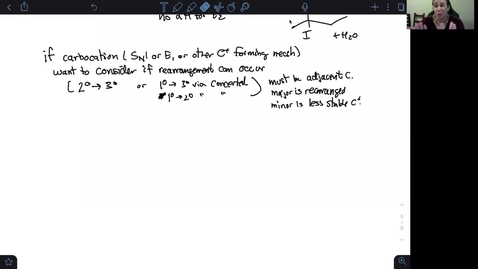 no αH for E2
I
+ H2O
if carbocation (SN1 or E1 or other C+ forming mech)
want to consider if rearrangement can occur
[2° → 3° or 1° → 3° via concerted
1° → 2° " "
must be adjacent C.
major is rearranged
minor is less stable C+.